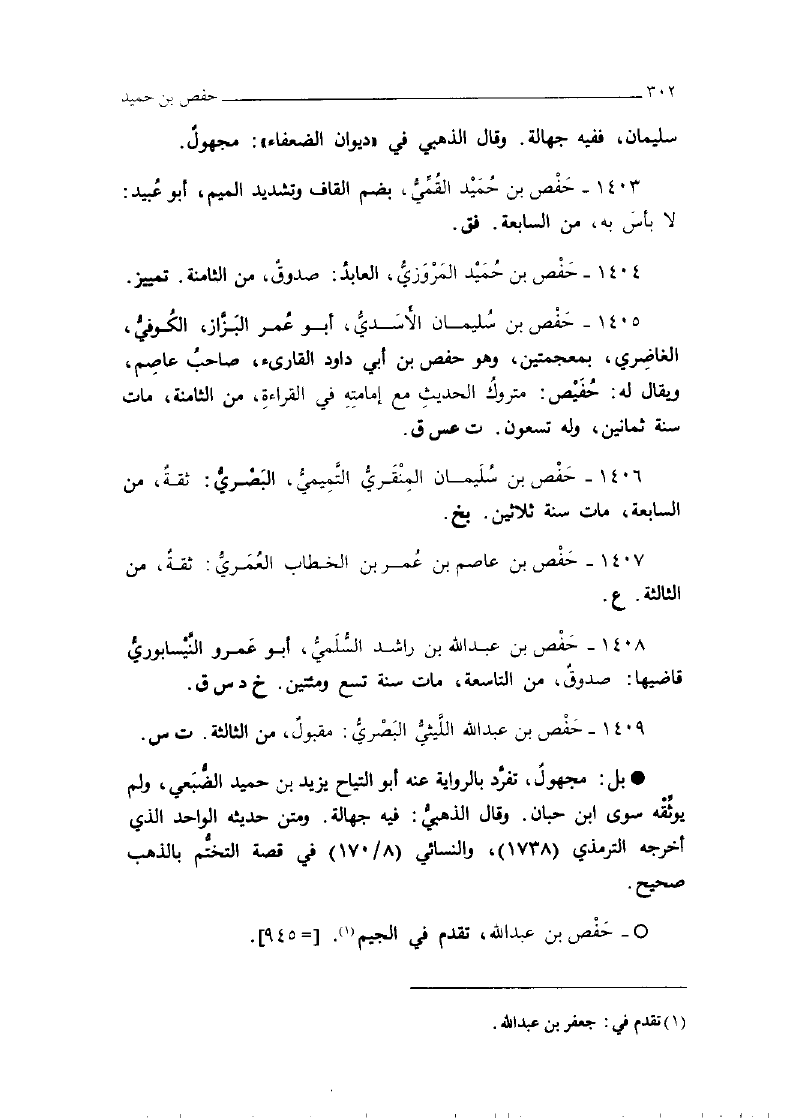 ٣٠٢ حفص بن حميد
سليمان، ففيه جهالة. وقال الذهبي في «ديوان الضعفاء»: مجهولٌ.
١٤٠٣ ـ حَفْص بن حُمَيْد القُمِّيُّ، بضم القاف وتشديد الميم، أبو عُبيد:
لا بأسَ به، من السابعة. فق.
١٤٠٤ ـ حَفْص بن حُمَيْد المَرْوَزيُّ، العابدُ: صدوقٌ، من الثامنة. تمييز.
١٤٠٥ ـ حَفْص بن سُليمـان الأَسَـديُّ، أبـو عُمـر البَـزَّاز، الكُـوفيُّ،
الغاضِري، بمعجمتين، وهو حفص بن أبي داود القارىء، صاحبُ عاصِم،
ويقال له: حُفَيْص: متروكُ الحديثِ مع إمامتِهِ في القراءةِ، من الثامنة، مات
سنة ثمانين، وله تسعون. ت عس ق.
١٤٠٦ ـ حَفْص بن سُلَيمـان المِنْقَـريُّ التَّميميُّ، البَصْـريُّ: ثقـةٌ، من
السابعة، مات سنة ثلاثين. بخ.
١٤٠٧ ـ حَفْص بن عاصم بن عُمـر بن الخـطاب العُمَـريُّ: ثقـةٌ، من
الثالثة. ع.
١٤٠٨ ـ حَفْص بن عبـدالله بن راشـد السُّلَميُّ، أبـو عَمـرو النَّيْسابوريُّ
قاضيها: صدوقٌ، من التاسعة، مات سنة تسع ومئتين. خ د س ق.
١٤٠٩ ـ حَفْص بن عبدالله اللَّيثيُّ البَصْريُّ: مقبولٌ، من الثالثة. ت س.
● بل: مجهولٌ، تفرَّد بالرواية عنه أبو التياح يزيد بن حميد الضُّبَعي، ولم
يوثِّقْه سوى ابن حبان. وقال الذهبيُّ: فيه جهالة. ومتن حديثه الواحد الذي
أخرجه الترمذي (١٧٣٨)، والنسائي (٨/١٧٠) في قصة التختُّم بالذهب
صحيح.
○ ـ حَفْص بن عبدالله، تقدم في الجيم(١). [= ٩٤٥].
(١) تقدم في: جعفر بن عبدالله.